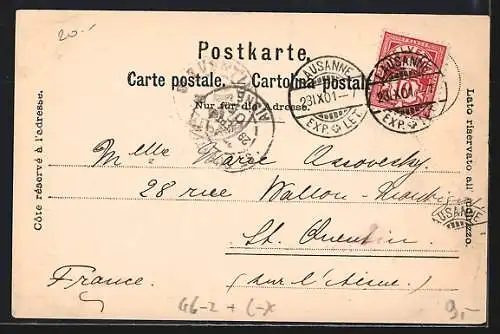 20.-
Postkarte.
Carte postale. Cartolina postale
Nur für die Adresse.
Côté réservé à l'adresse.
Lato riservato all' indirizzo.
LAUSANNE
23 IX 01
EXP. LET.
LAUSANNE
23 IX 01
EXP. LET.
LAUSANNE
AISNE
Melle Marie
28 rue Wallon-
St. Quentin
(sur l'Aisne)
France.
9.-